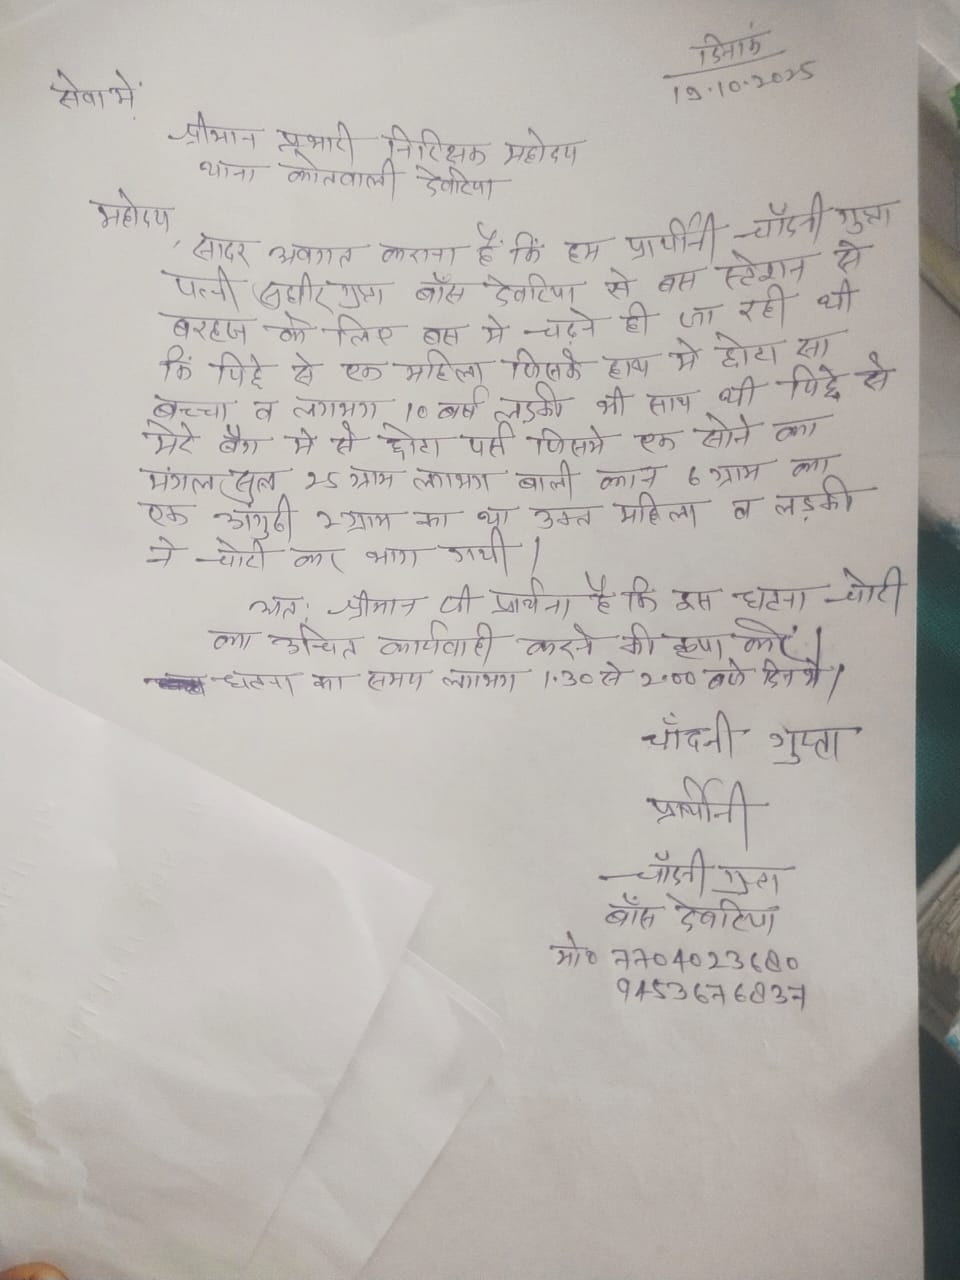 दिनांक
19.10.2025
सेवा में,
श्रीमान प्रभारी निरिक्षक महोदय
थाना कोतवाली देवरिया
महोदय,
सादर अवगत कराना है कि हम प्रार्थीनी चाँदनी गुप्ता
पत्नी सुधीर गुप्ता बाँस देवरिया से बस स्टेशन से
बरहज के लिए बस मे चढ़ने ही जा रही थी
कि पिछे से एक महिला जिसके हाथ मे छोटा सा
बच्चा व लगभग 10 बर्ष लड़की भी साथ थी पिछे से
मेरे बैग मे से छोटा पर्स जिसमे एक सोने का
मंगल सुत्र 25 ग्राम लगभग बाली कान 6 ग्राम का
एक अंगुठी 2 ग्राम का था उक्त महिला व लड़की
ने चोरी कर भाग गयी।
अतः श्रीमान जी प्रार्थना है कि इस घटना चोरी
का उचित कार्यवाही करने की कृपा करें।
घटना का समय लगभग 1.30 से 2.00 बजे दिन मे।
चाँदनी गुप्ता
प्रार्थीनी
चाँदनी गुप्ता
बाँस देवरिया
मो० 7704023680
9453676837